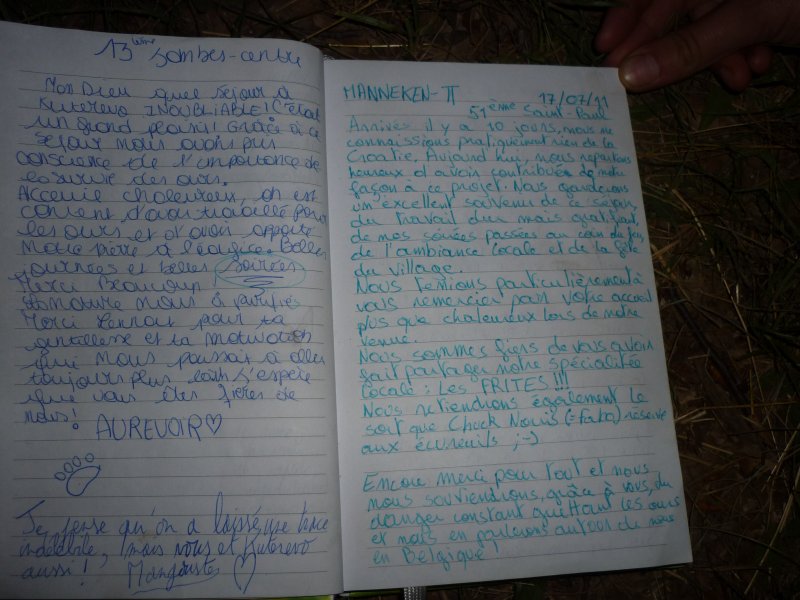 13ième Sombes-centre
Mon Dieu quel séjour à
Kuterevo INOUBLIABLE! C'était
un grand plaisir! Grâce à ce
séjour nous avons pris
conscience de l'importance de
la survie des ours.
Accueil chaleureux, on est
content d'avoir travaillé pour
les ours et d'avoir apporté
notre pierre à l'édifice. Belles
journées et belles soirées
Merci Beaucoup!
La nature nous a
Merci pour ta
gentillesse et ta motivation
qui nous poussait à aller
toujours plus loin. J'espère
que vous êtes fières de
nous!
AUREVOIR♡
Je pense qu'on a laissé une trace
indélébile, mais vous et Kuterevo
aussi! Mangouste ♡
MANNEKEN-π 17/07/11
51ème Saint-Paul
Arrivés il y a 10 jours, nous ne
connaissions pratiquement rien de la
Croatie. Aujourd'hui, nous repartons
heureux d'avoir contribué de notre
façon à ce projet. Nous garderons
un excellent souvenir de ce séjour,
du travail dur mais gratifiant,
de nos soirées passées au coin du feu,
de l'ambiance locale et de la fête
du village.
Nous tenions particulièrement à
vous remercier pour votre accueil
plus que chaleureux lors de notre
venue.
Nous sommes fiers de vous avoir
fait partager notre spécialité
locale : LES FRITES!!!
Nous retiendrons également le
sort que Chuck Norris (=fabo) réserve
aux écureuils ;-)
Encore merci pour tout et nous
nous souviendrons, grâce à vous, du
danger constant guettant les ours
et nous en parlerons autour de nous
en Belgique